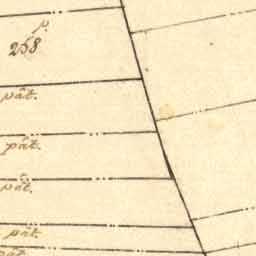 p.
258
pât.
pât.
pât.
pât
pât